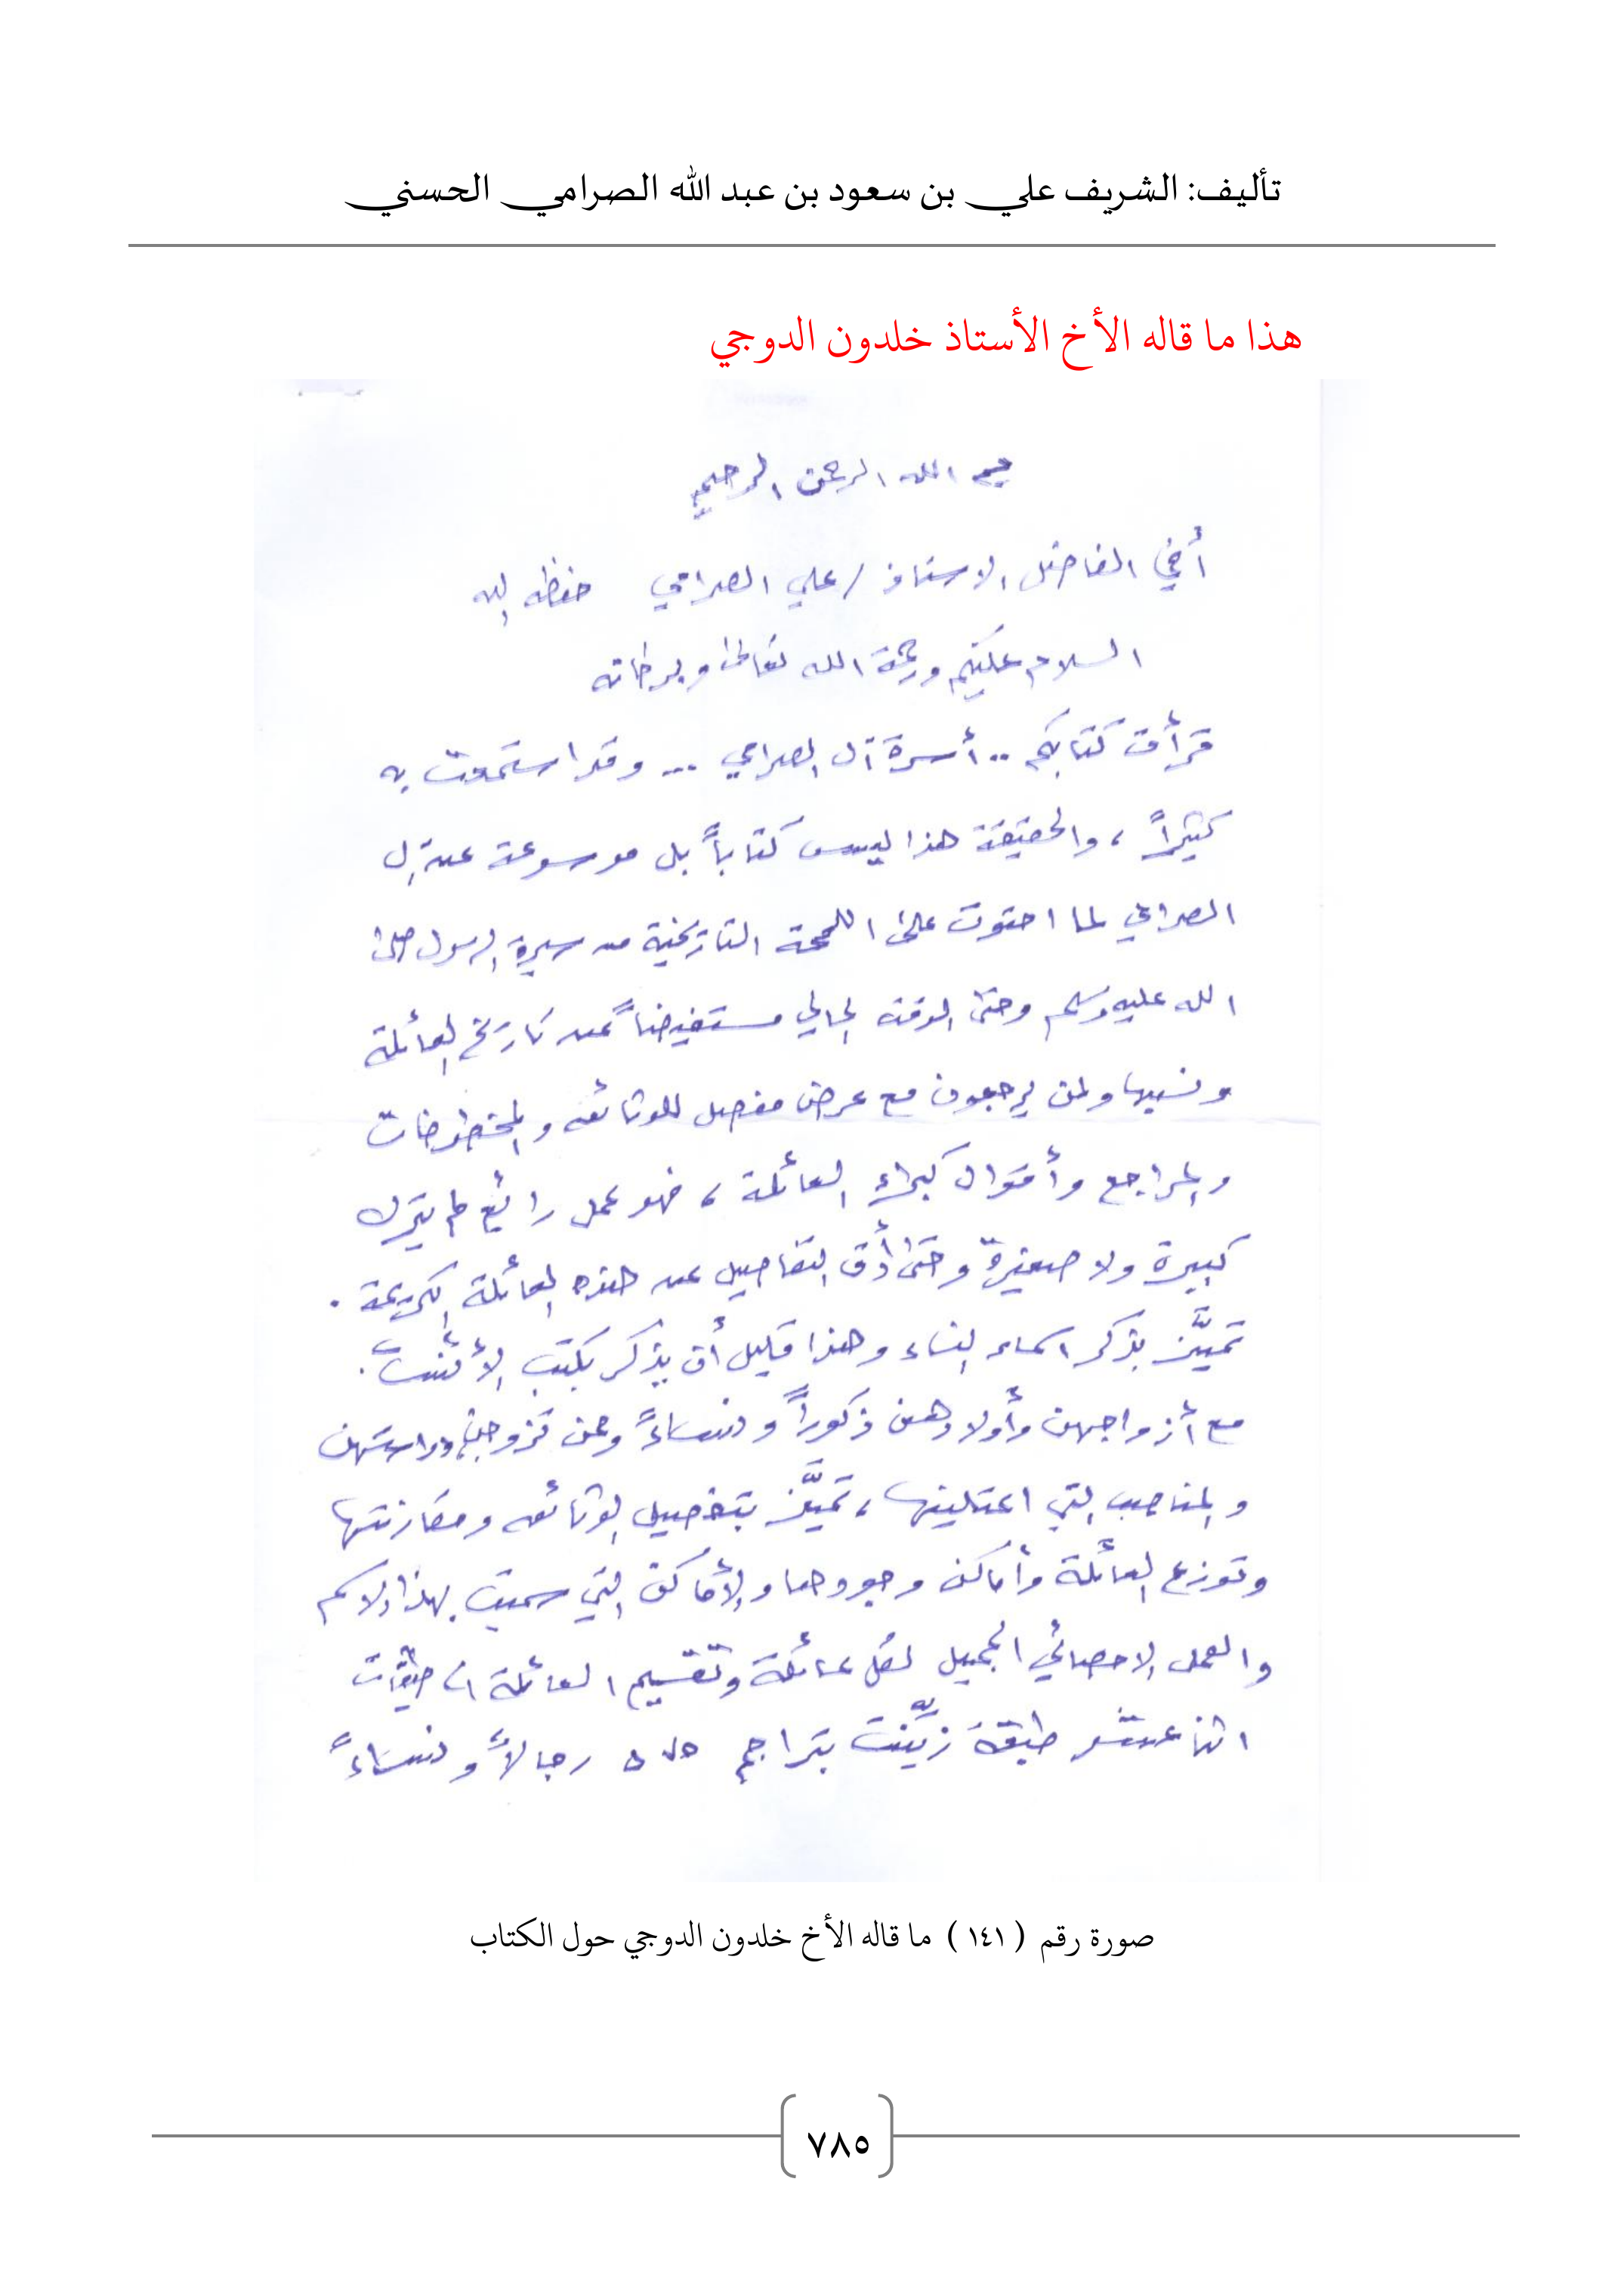 تأليف: الشريف علي بن سعود بن عبد الله الصرامي الحسني
هذا ما قاله الأخ الأستاذ خلدون الدوجي
بسم الله الرحمن الرحيم
أخي الفاضل الاستاذ / علي الصرامي حفظه الله
السلام عليكم ورحمة الله تعالى وبركاته
قرأت كتابكم .. أسرة آل الصرامي ... وقد استمتعت به
كثيراً ، والحقيقة هذا ليس كتاباً بل موسوعة عن آل
الصرامي لما احتوت على اللمحة التاريخية من سيرة الرسول صلى
الله عليه وسلم وحتى الوقت الحالي مستفيضاً عن تاريخ العائلة
ونسبها ولمن يرجعون مع عرض مفصل للوثائق والمخطوطات
والمراجع وأقوال كبراء العائلة ، فهو عمل رائع لم يترك
كبيرة ولا صغيرة وحتى أدق التفاصيل عن هذه العائلة الكريمة .
تميَّز بذكر اسماء النساء وهذا قليل أن يذكر بكتب الأنساب .
مع أزواجهن وأولادهن ذكوراً ونساءً ومن تزوجن ودراستهن
والمناصب التي اعتلينها ، تميَّز بتفصيل الوثائق ومقارنتها
وتوزع العائلة وأماكن وجودها والأماكن التي سميت بهذا الاسم
والعمل الاحصائي الجميل لكل عائلة وتقسيم العائلة الى طبقات
اثنا عشر طبقة زيِّنت بتراجم رجالاً ونساءً
صورة رقم ( ١٤١ ) ما قاله الأخ خلدون الدوجي حول الكتاب
٧٨٥